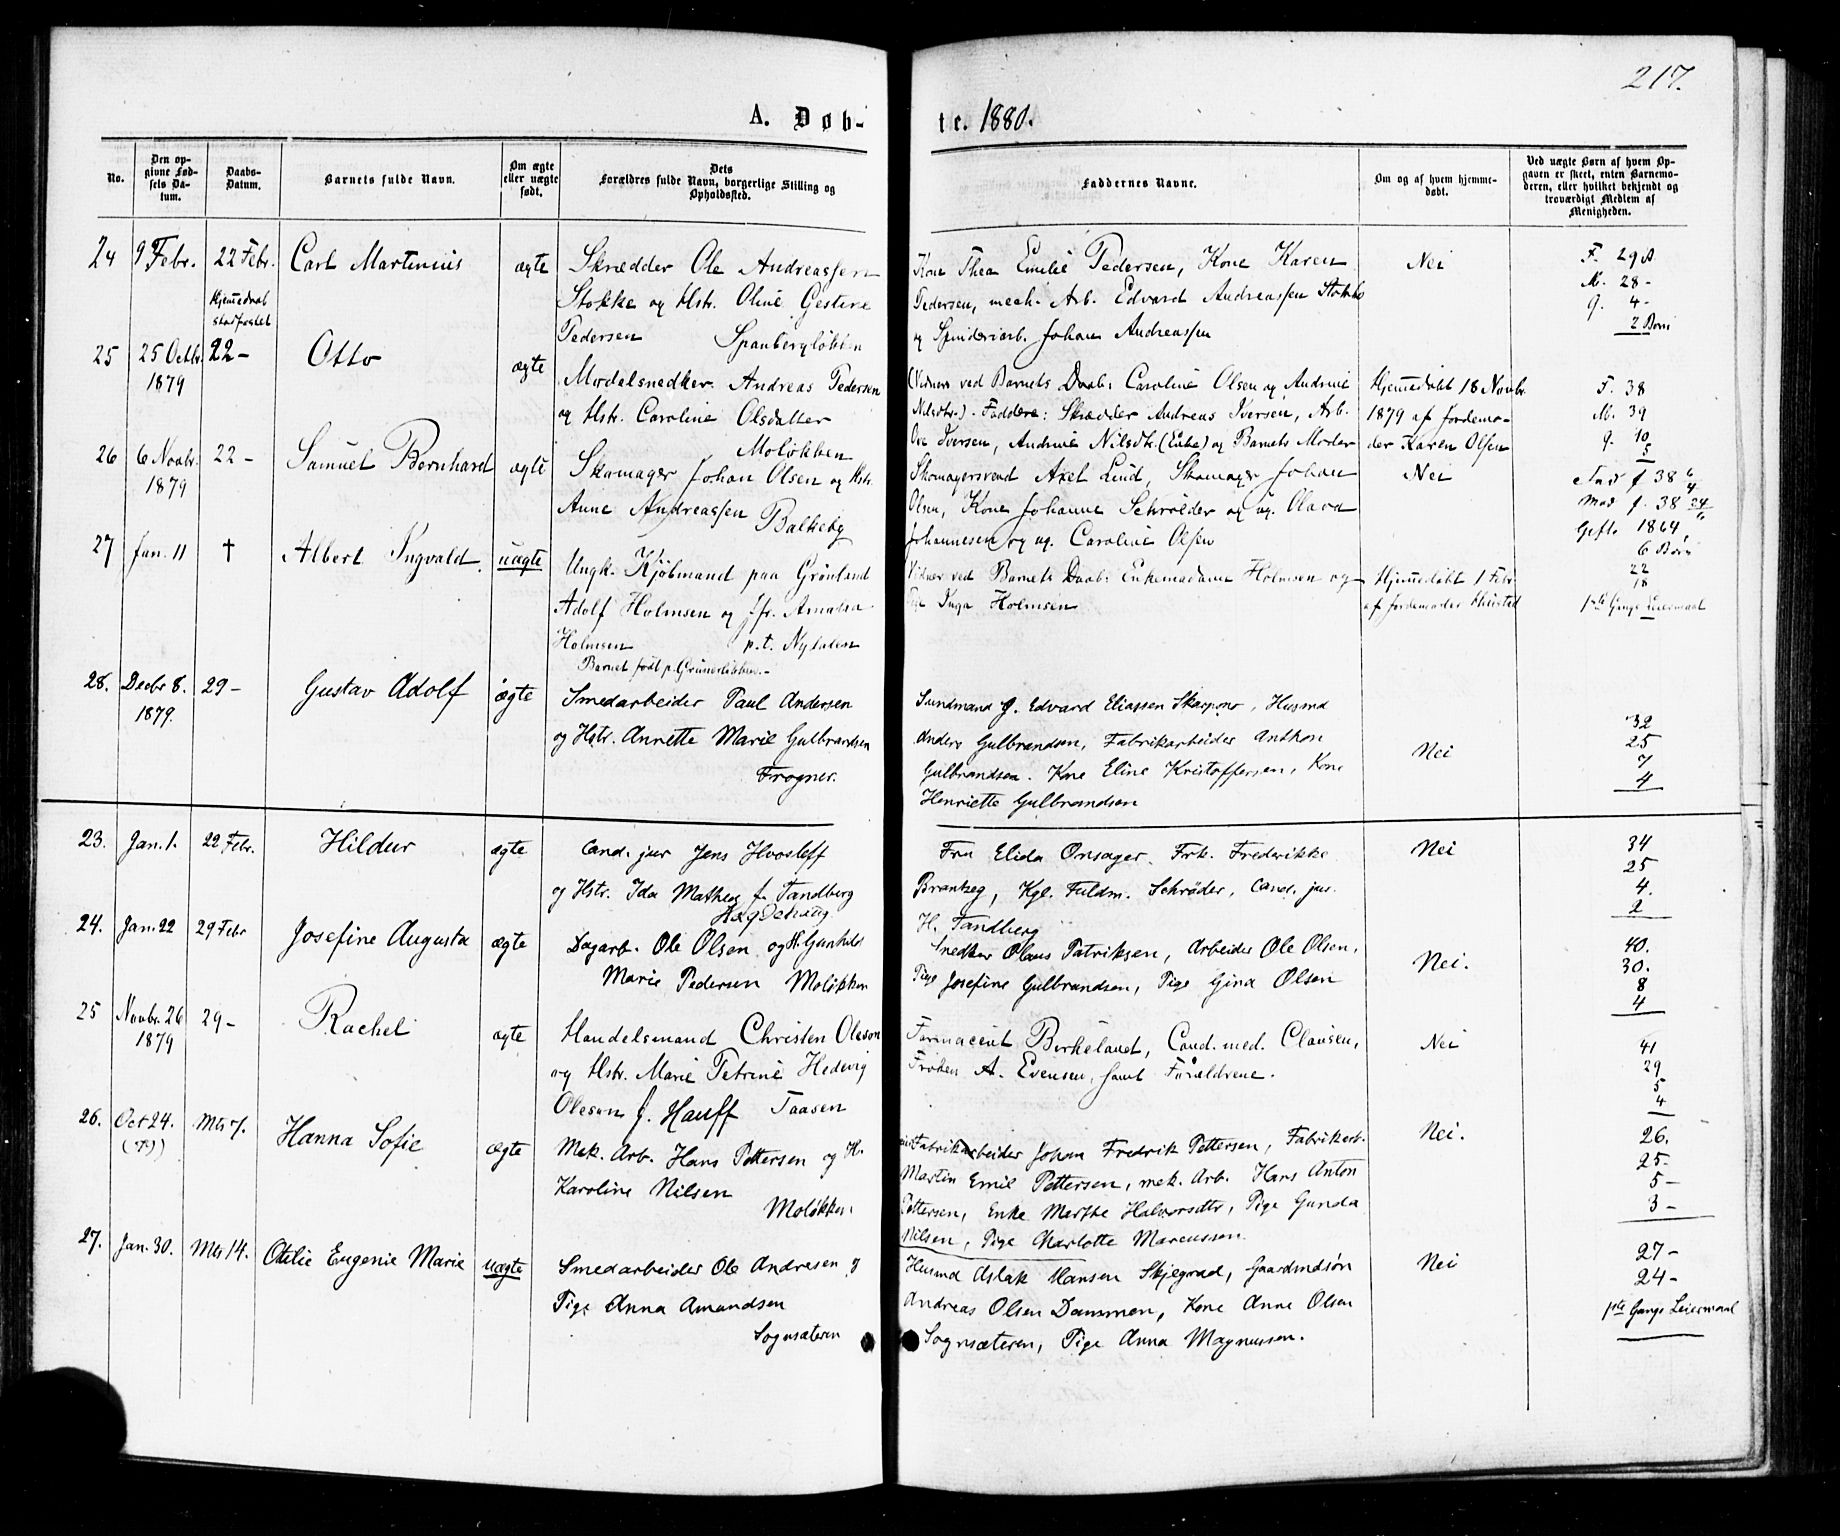 217.
A. Døb-
te. 1880.
No.
Den op-
givne Fød-
sels Da-
tum.
Daabs-
Datum.
Barnets fulde Navn.
Om ægte
eller uægte
født.
Dets
Forældres fulde Navn, borgerlige Stilling og
Opholdssted.
Faddernes Navne.
Om og af hvem hjemme-
døbt.
Ved uægte Børn af hvem Op-
gaven er skeet, enten Barnemo-
deren, eller hvilket bekjendt og
troværdigt Medlem af
Menigheden.
24 9 Febr. 22 Febr. Carl Martinius ægte
Skrædder Ole Andreassen
Stokke og Hstr. Oline Gestine
Pedersen Spanbergløkken
Kone Thea Emilie Pedersen, Kone Karen
Pedersen, mech. Arb. Edvard Andreassen Stokke
og Spinderiarb. Johan Andreassen
Nei
F. 29
M. 28 -
g. 4 -
2 Børn
Hjemmedaab
stadfæstet
25 25 Octbr. 22 - Otto ægte
1879
Modelsnedker Andreas Pedersen
og Hstr. Caroline Olsdatter
Moløkken
(Vidner ved Barnets Daab: Caroline Olsen og Andrine
Nilsdtr.) - Faddere: Skrædder Andreas Iversen, Arb.
Ove Iversen, Andrine Nilsdtr. (Enke) og Barnets Moder
Hjemmedøbt 18 Novbr.
1879 af Jordemo-
der Karen Olsen
F. 38
M. 39
g. 10
5
26 6 Novbr. 22 - Samuel Bernhard ægte
1879
Skomager Johan Olsen og Hstr.
Anne Andreassen Balkeby
Skomagersvend Axel Lund, Skomager Johan
Olsen, Kone Johanne Schrøder og ug. Olava
Johannesen og ug. Caroline Olsen
Nei
f 38
f. 38
Gift 1864
6 Børn
27 Jan. 11 † Albert Ingvald. uægte
Ungk. Kjøbmand paa Grønland
Adolf Holmsen og Jfr. Amalia
Holmsen p.t. Nydalen
Barnet født p. Grünerløkken. -
Vidner ved Barnets Daab: Enkemadame Holmsen og
Pige Inga Holmsen
Hjemmedøbt 1 Febr.
af Jordemoder
22
18
1ste Gangs Leiermaal
28. Decbr 8. 29 - Gustav Adolf ægte
1879.
Smedarbeider Paul Andersen
og Hstr. Annette Marie Gulbrandsen
Frogner.
Sundmand G. Edvard Eliassen Skarpsno, Husmd
Anders Gulbrandsen, Fabrikarbeider Anthon
Gulbrandsen. Kone Eline Kristoffersen, Kone
Henriette Gulbrandsen
Nei
32
25
7
4
23. Jan. 1. 22 Febr. Hildur ægte
Cand. jur Jens Hvoslef
og Hstr. Ida Mathea f. Tandberg
Hægdehaug
Fru Elida Onsager. Frk. Frederikke
Brantzeg, Kgl. Fuldm. Schrøder, Cand. jur.
H. Tandberg
Nei
34
25
4.
2
24. Jan. 22 29 Febr Josefine Augusta ægte
Dagarb. Ole Olsen og H. Gunhild
Marie Pedersen Moløkken
Snedker Olaus Patriksen, Arbeider Ole Olsen,
Pige Josefine Gulbrandsen, Pige Gina Olsen
Nei.
40.
30.
8
4
25 Novbr. 26 29 - Rachel ægte
1879
Handelsmand Christen Oleson
og Hstr. Marie Petrine Hedevig
Oleson f. Hauff Taasen
Farmaceut Birkeland, Cand. med. Clausen,
Frøken A. Evensen, samt Forældrene.
Nei
41
29
5
4
26. Oct 24. Mts 7. Hanna Sofie ægte
(79)
Mek. Arb. Hans Pettersen og H.
Karoline Nilsen
Moløkken
Fabrikarbeider Johan Fredrik Pettersen, Fabrikarb.
Martin Emil Pettersen, mek. Arb. Hans Anton
Pettersen, Enke Marthe Halvorsdtr, Pige Gunda
Nilsen, Pige Charlotte Marcussen.
Nei.
26.
25-
5 -
3 -
27. Jan. 30. Mts 14. Otilie Eugenie Marie uægte
Smedarbeider Ole Andresen og
Pige Anna Amundsen
Sognsæteren
Husmd Aslak Hansen Skjegrad, Gaardmdsøn
Andreas Olsen Dammen, Kone Anne Olsen
Sognsæteren, Pige Anna Magnussen.
Nei
27 -
24 -
1ste Gangs Leiermaal